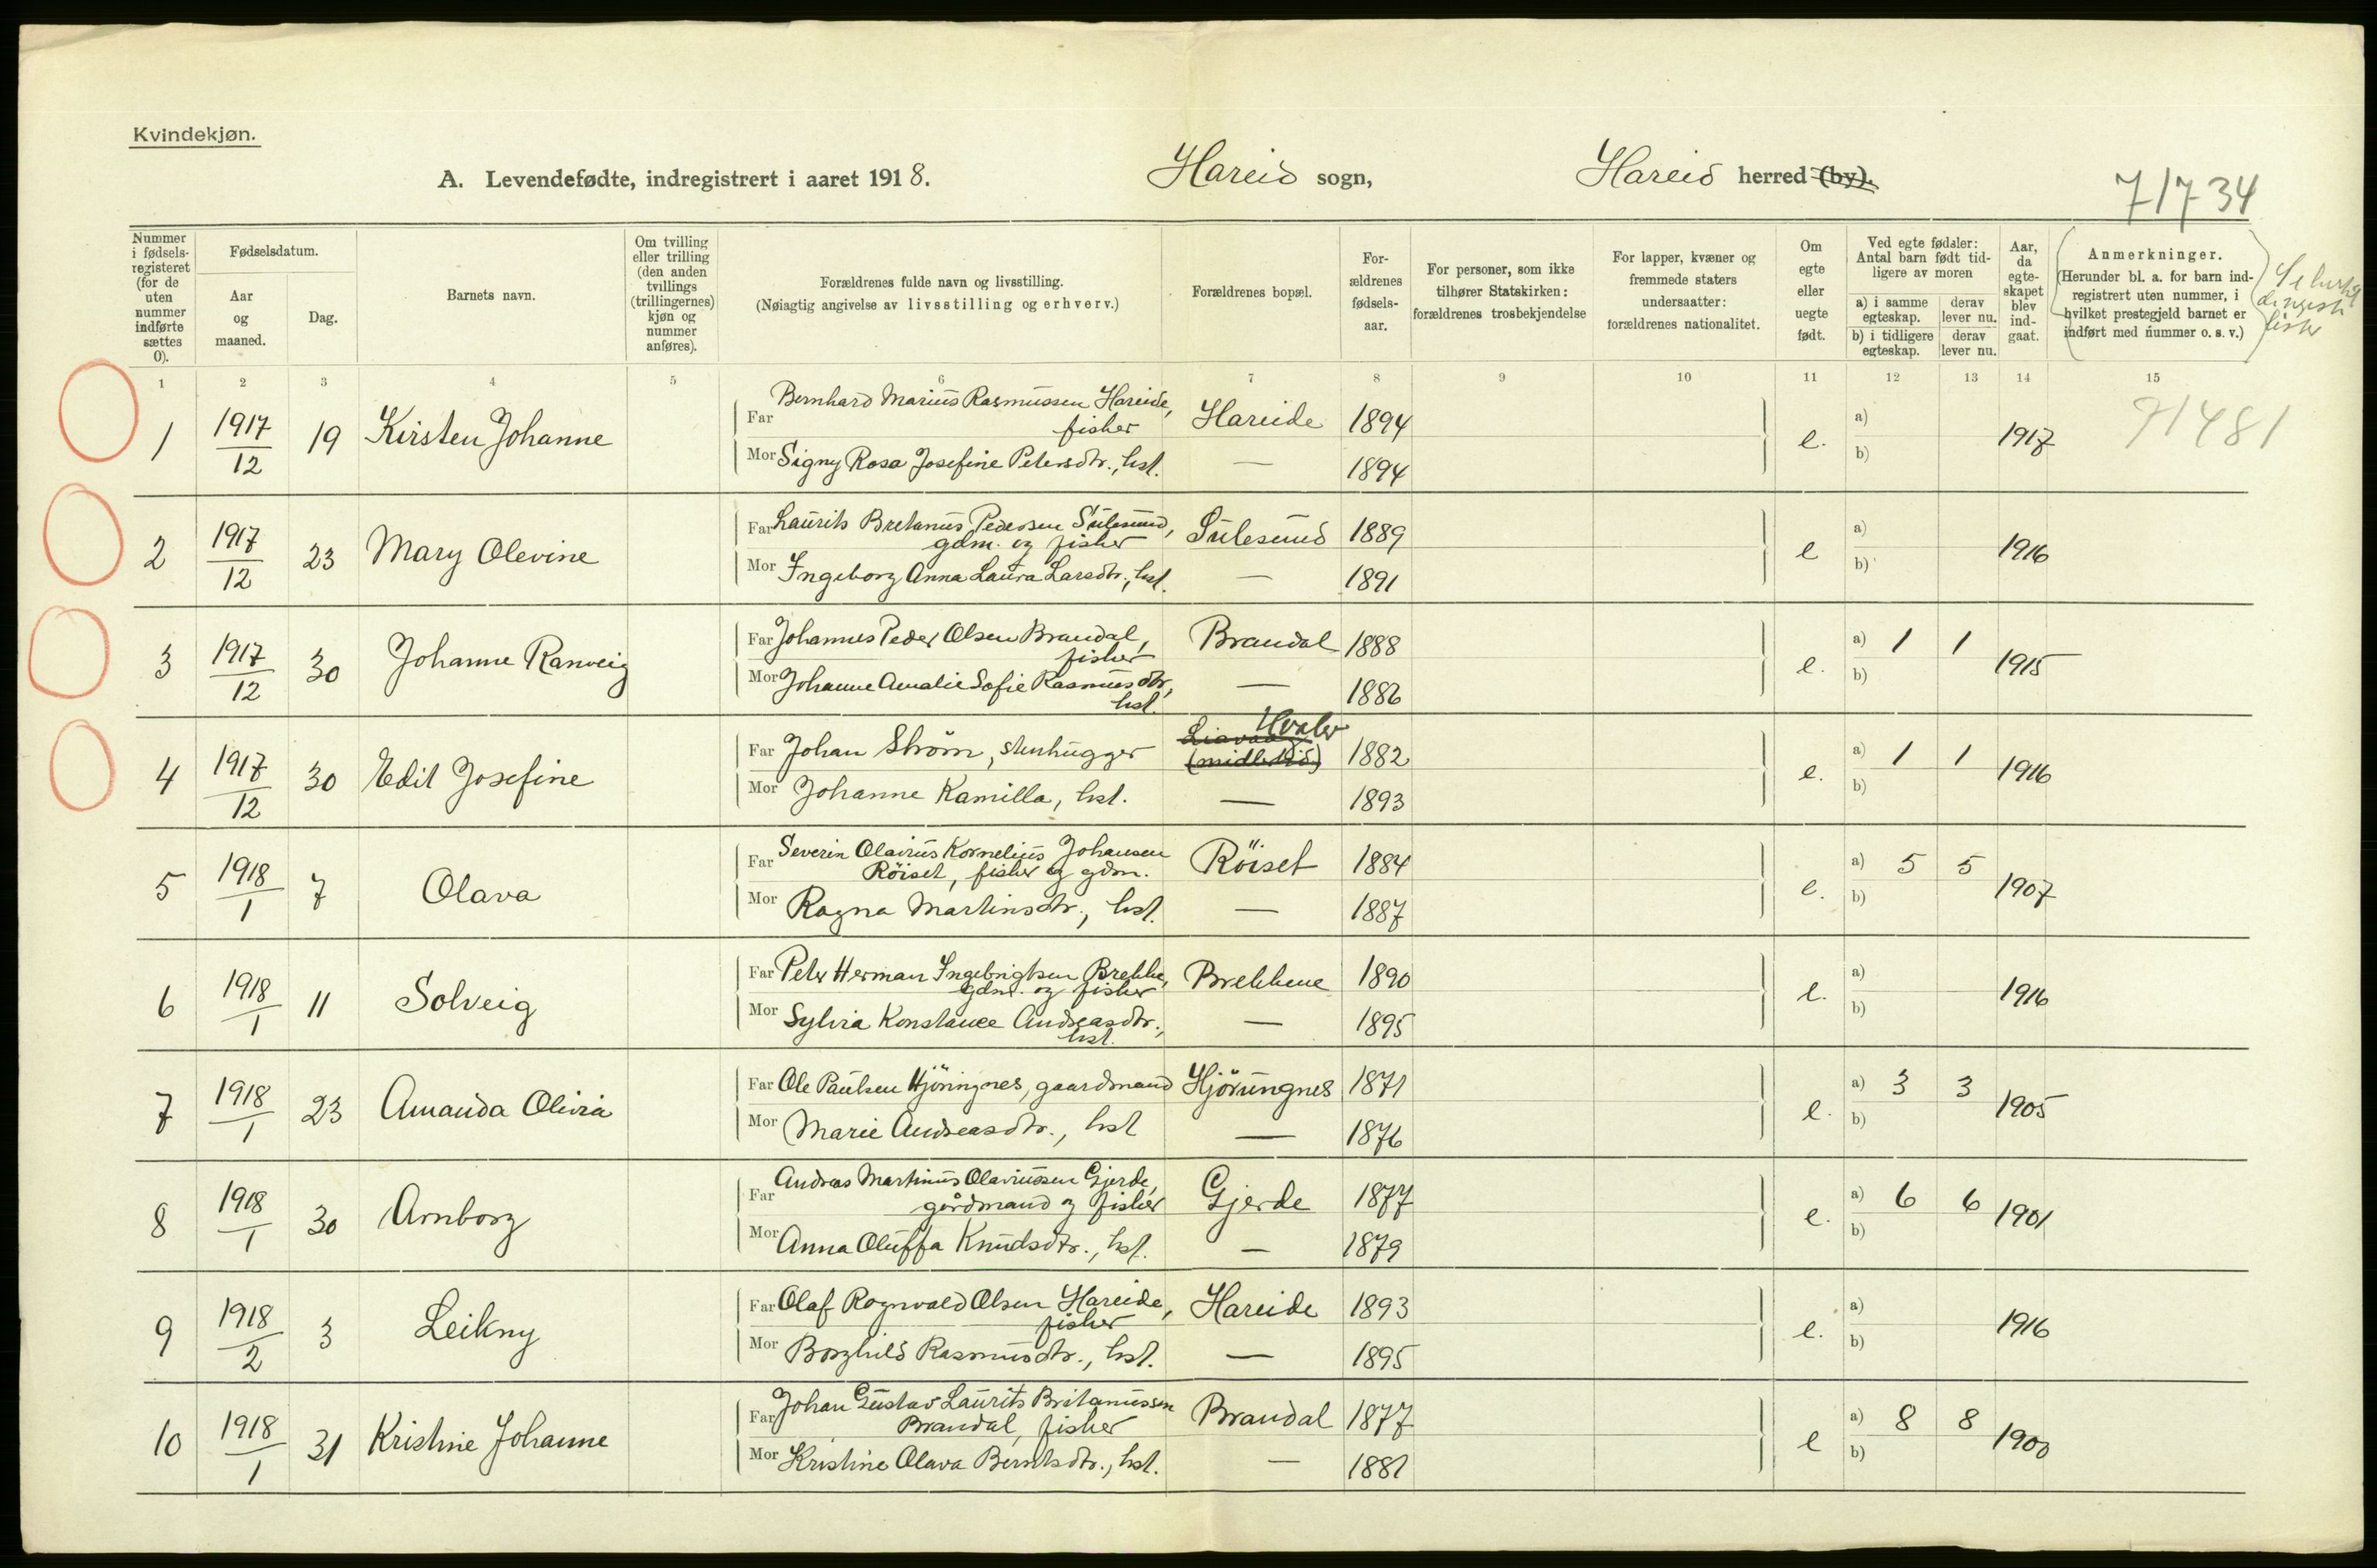 Kvindekjøn.
A. Levendefødte, indregistrert i aaret 1918. Hareid sogn, Hareid herred (by).
71734
Nummer i fødsels-registeret (for de uten nummer indførte sættes 0).
Fødselsdatum.
Aar og maaned.
Dag.
Barnets navn.
Om tvilling eller trilling (den anden tvillings (trillingernes) kjøn og nummer anføres).
Forældrenes fulde navn og livsstilling.
(Nøiagtig angivelse av livsstilling og erhverv.)
Forældrenes bopæl.
For-ældrenes fødsels-aar.
For personer, som ikke tilhører Statskirken: forældrenes trosbekjendelse
For lapper, kvæner og fremmede staters undersaatter: forældrenes nationalitet.
Om egte eller uegte født.
Ved egte fødsler: Antal barn født tid-ligere av moren
a) i samme egteskap. derav lever nu.
b) i tidligere egteskap. derav lever nu.
Aar, da egte-skapet blev ind-gaat.
Anmerkninger.
(Herunder bl. a. for barn ind-registrert uten nummer, i hvilket prestegjeld barnet er indført med nummer o. s. v.)
1 2 3 4 5 6 7 8 9 10 11 12 13 14 15
71481
1 1917/12 19 Kirsten Johanne
Far Bernhard Marius Rasmussen Hareide, fisker Hareide 1894
Mor Signy Rosa Josefine Petersdtr., hst. — 1894
e. a) b) 1917
2 1917/12 23 Mary Olevine
Far Laurits Bretanus Pedersen Sulesund, gdm. og fisker Sulesund 1889
Mor Ingeborg Anna Laura Larsdtr., hst. — 1891
e a) b) 1916
3 1917/12 30 Johanne Ranveig
Far Johannes Peder Olsen Brandal, fisker Brandal 1888
Mor Johanne Amalie Sofie Rasmusdtr, hst. — 1886
e. a) 1 1 b) 1915
4 1917/12 30 Edit Josefine
Far Johan Strøm, stenhugger Hvaler (midlertid) 1882
Mor Johanne Kamilla, hst. — 1893
e. a) 1 1 b) 1916
5 1918/1 7 Olava
Far Severin Olavius Kornelius Johansen Röiset, fisker og gdm. Röiset 1884
Mor Ragna Martinsdtr., hst. — 1887
e. a) 5 5 b) 1907
6 1918/1 11 Solveig
Far Peter Herman Ingebrigtsen Brekke, gdm. og fisker Brekkene 1890
Mor Sylvia Konstance Andreasdtr., hst. — 1895
e. a) b) 1916
7 1918/1 23 Amanda Olivia
Far Ole Paulsen Hjöringnes, gaardmand Hjörungnes 1871
Mor Marie Andreasdtr., hst — 1876
e. a) 3 3 b) 1905
8 1918/1 30 Arnborg
Far Andreas Martinus Olaviussen Gjerde, gårdmand og fisker Gjerde 1877
Mor Anna Oluffa Knudsdtr., hst. — 1879
e. a) 6 6 b) 1901
9 1918/2 3 Leikny
Far Olaf Rognvald Olsen Hareide, fisker Hareide 1893
Mor Borghild Rasmusdtr., hst. — 1895
e. a) b) 1916
10 1918/1 31 Kristine Johanne
Far Johan Gustav Laurits Britanussen Brandal, fisker Brandal 1877
Mor Kristine Olava Berntsdtr., hst. — 1881
e a) 8 8 b) 1900